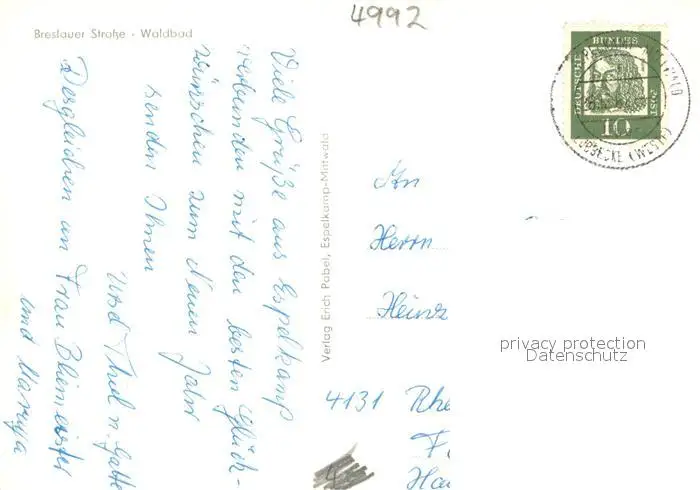 4992
Breslauer Straße - Waldbad
Viele Grüße aus Espelkamp
verbunden mit den besten Glück-
wünschen zum Neuen Jahr
senden Ihnen
Desgleichen an Frau
und
Verlag Erich Pabel, Espelkamp-Mittwald
DEUTSCHE
BUNDES
POST
10
LÜBBECKE (WESTF)
An
Herrn
Heinz
4131 Rhe
privacy protection
Datenschutz